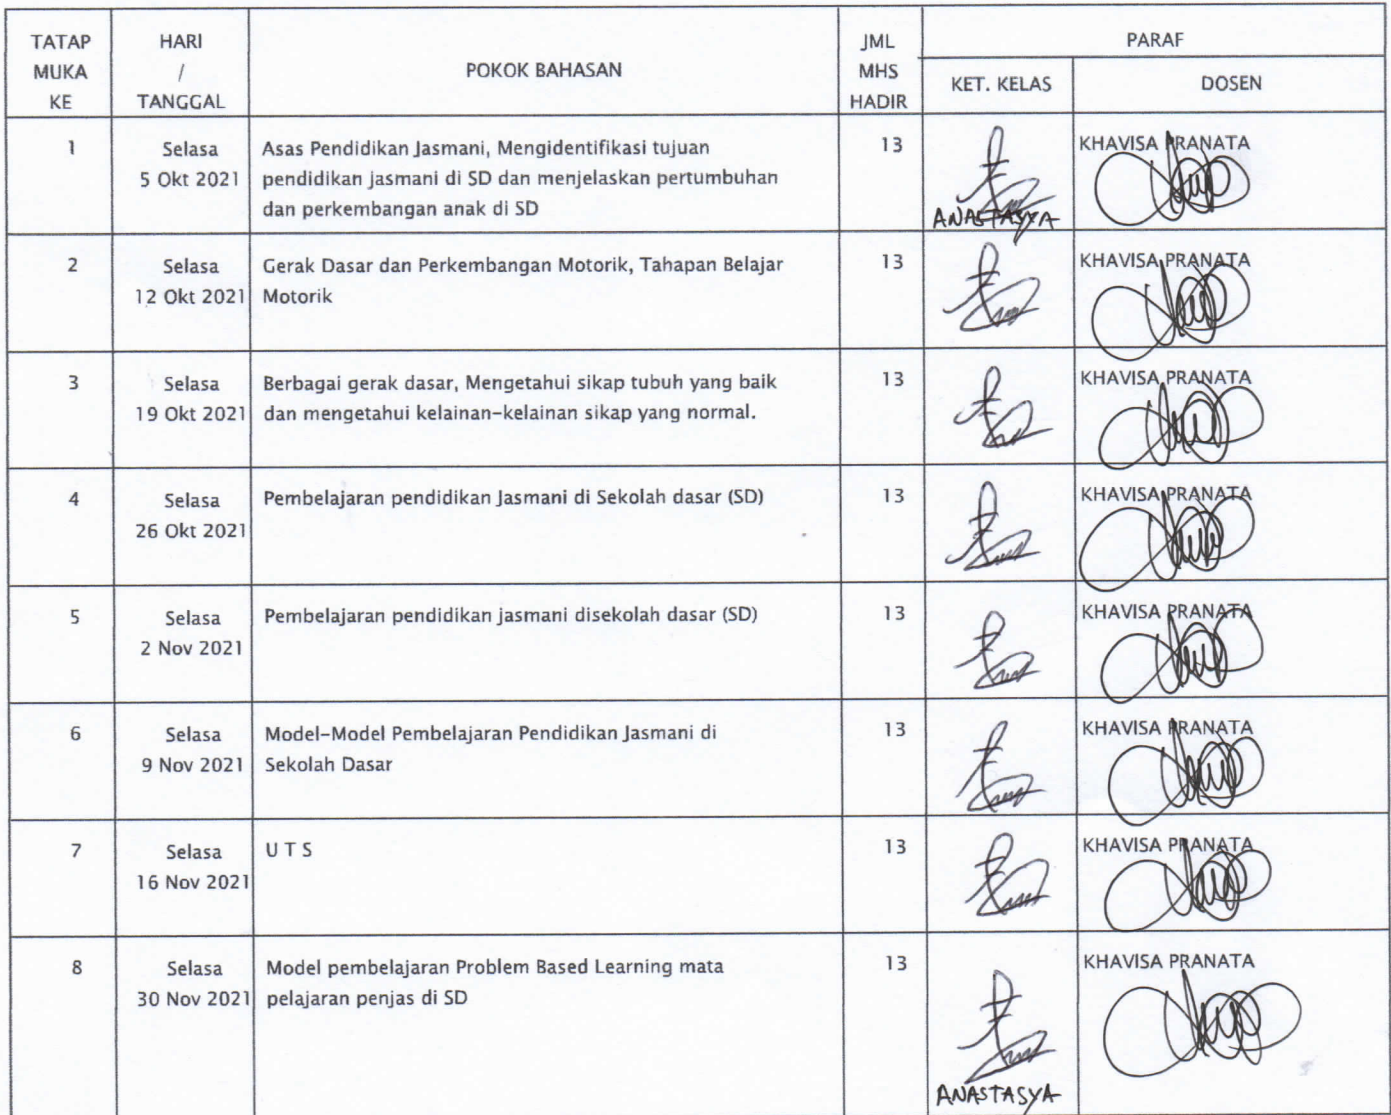 TATAP MUKA KE
HARI / TANGGAL
POKOK BAHASAN
JML MHS HADIR
PARAF
KET. KELAS
DOSEN
1
Selasa
5 Okt 2021
Asas Pendidikan Jasmani, Mengidentifikasi tujuan
pendidikan jasmani di SD dan menjelaskan pertumbuhan
dan perkembangan anak di SD
13
ANASTASYA
KHAVISA PRANATA
2
Selasa
12 Okt 2021
Gerak Dasar dan Perkembangan Motorik, Tahapan Belajar
Motorik
13
KHAVISA PRANATA
3
Selasa
19 Okt 2021
Berbagai gerak dasar, Mengetahui sikap tubuh yang baik
dan mengetahui kelainan-kelainan sikap yang normal.
13
KHAVISA PRANATA
4
Selasa
26 Okt 2021
Pembelajaran pendidikan Jasmani di Sekolah dasar (SD)
13
KHAVISA PRANATA
5
Selasa
2 Nov 2021
Pembelajaran pendidikan jasmani disekolah dasar (SD)
13
KHAVISA PRANATA
6
Selasa
9 Nov 2021
Model-Model Pembelajaran Pendidikan Jasmani di
Sekolah Dasar
13
KHAVISA PRANATA
7
Selasa
16 Nov 2021
U T S
13
KHAVISA PRANATA
8
Selasa
30 Nov 2021
Model pembelajaran Problem Based Learning mata
pelajaran penjas di SD
13
ANASTASYA
KHAVISA PRANATA